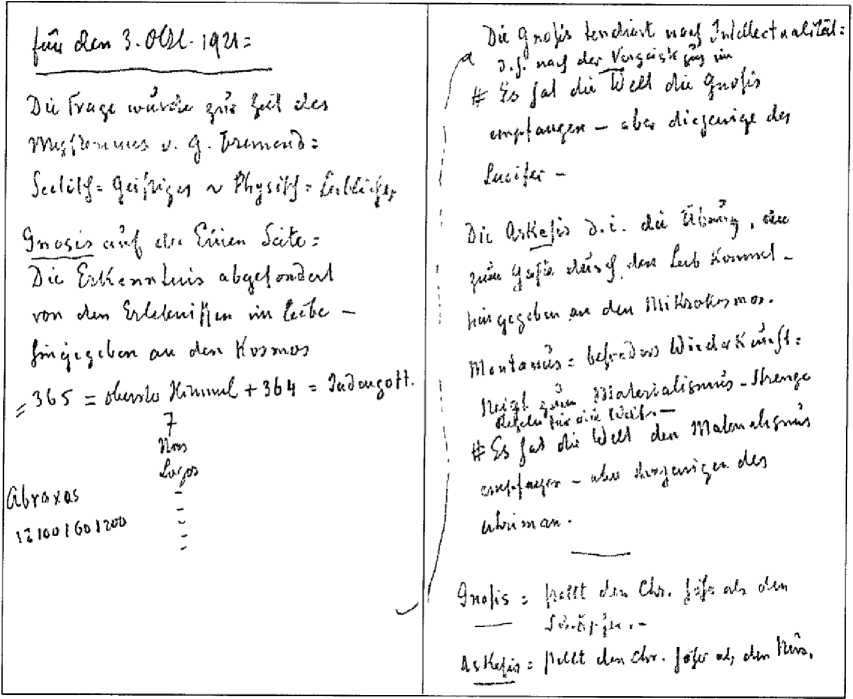 für den 3. Okt. 1921 =
Die Frage wurde zur Zeit des
Mysteriums v. G. brennend =
Seelisch = Geistiges ~ Physisch = Leibliches
Gnosis auf der Einen Seite =
Die Erkenntnis abgesondert
von den Erlebnissen im Leibe –
hingegeben an den Kosmos
= 365 = oberster Himmel + 364 = Judengott.
7
Nus
Logos
-
-
-
-
Abraxas
1 2 100 1 60 1 200
Die Gnosis tendiert nach Intellectualität =
d. h. nach der Vergeistigung im
# Es hat die Welt die Gnosis
empfangen – aber diejenige des
Lucifer –
Die Askesis d. i. die Übung, die
zum Geiste durch den Leib kommt –
hingegeben an den Mikrokosmos.
Montanus = besonders Wiederkunft =
Neigt zum Materialismus – Strenge
Regeln für die –
# Es hat die Welt den Materialismus
empfangen – aber denjenigen des
Ahriman.
Gnosis = stellt den Chr. höher als den
Schöpfer. –
Askesis = stellt den Chr. höher als den Nus.